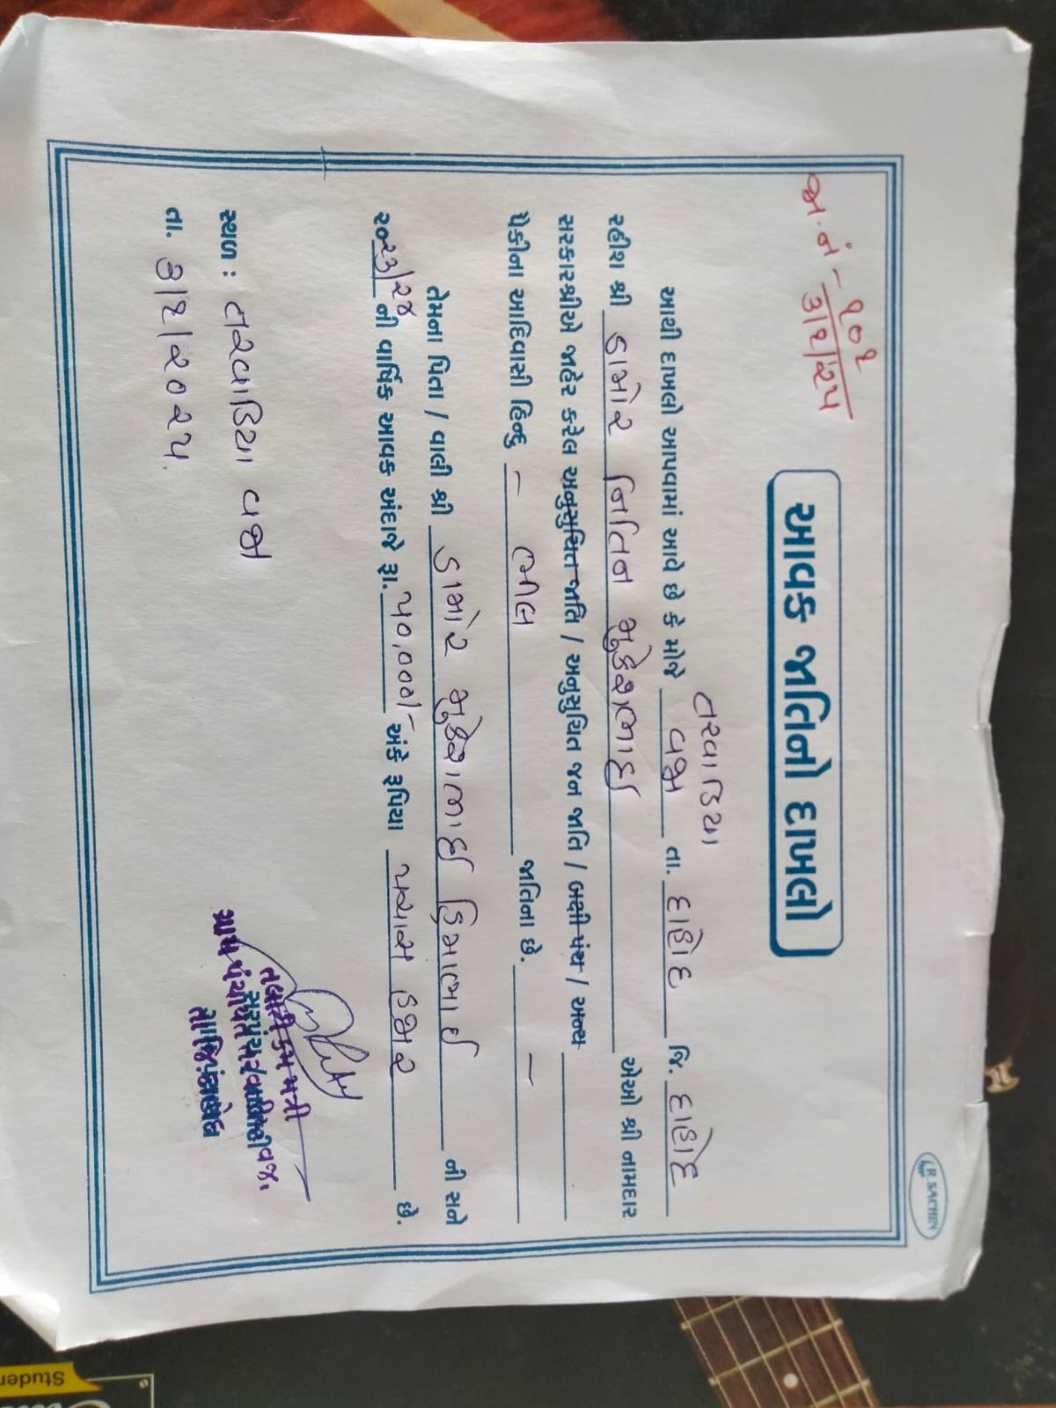 LR. SACHIN
જા.નં - ૨૦૧
૩/૨/૨૫
આવક જાતિનો દાખલો
તરવાડિયા
આથી દાખલો આપવામાં આવે છે કે મોજે વજા તા. દાહોદ જિ. દાહોદ
રહીશ શ્રી ડામોર નિતિન મુકેશભાઇ એઓ શ્રી નામદાર
સરકારશ્રીએ જાહેર કરેલ અનુસુચિત જાતિ / અનુસુચિત જન જાતિ / બક્ષી પંચ / અન્ય
પૈકીના આદિવાસી હિન્દુ - ભીલ જાતિના છે. -
તેમના પિતા / વાલી શ્રી ડામોર મુકેશભાઇ હિમાભાઇ ની સને
૨૦૨૩/૨૪ ની વાર્ષિક આવક અંદાજે રૂા. ૫૦,૦૦૦/- અંકે રૂપિયા પચાસ હજાર છે.
સ્થળ : તરવાડિયા વજા
તા. ૩/૨/૨૦૨૫
તલાટી કમ મંત્રી
Studen